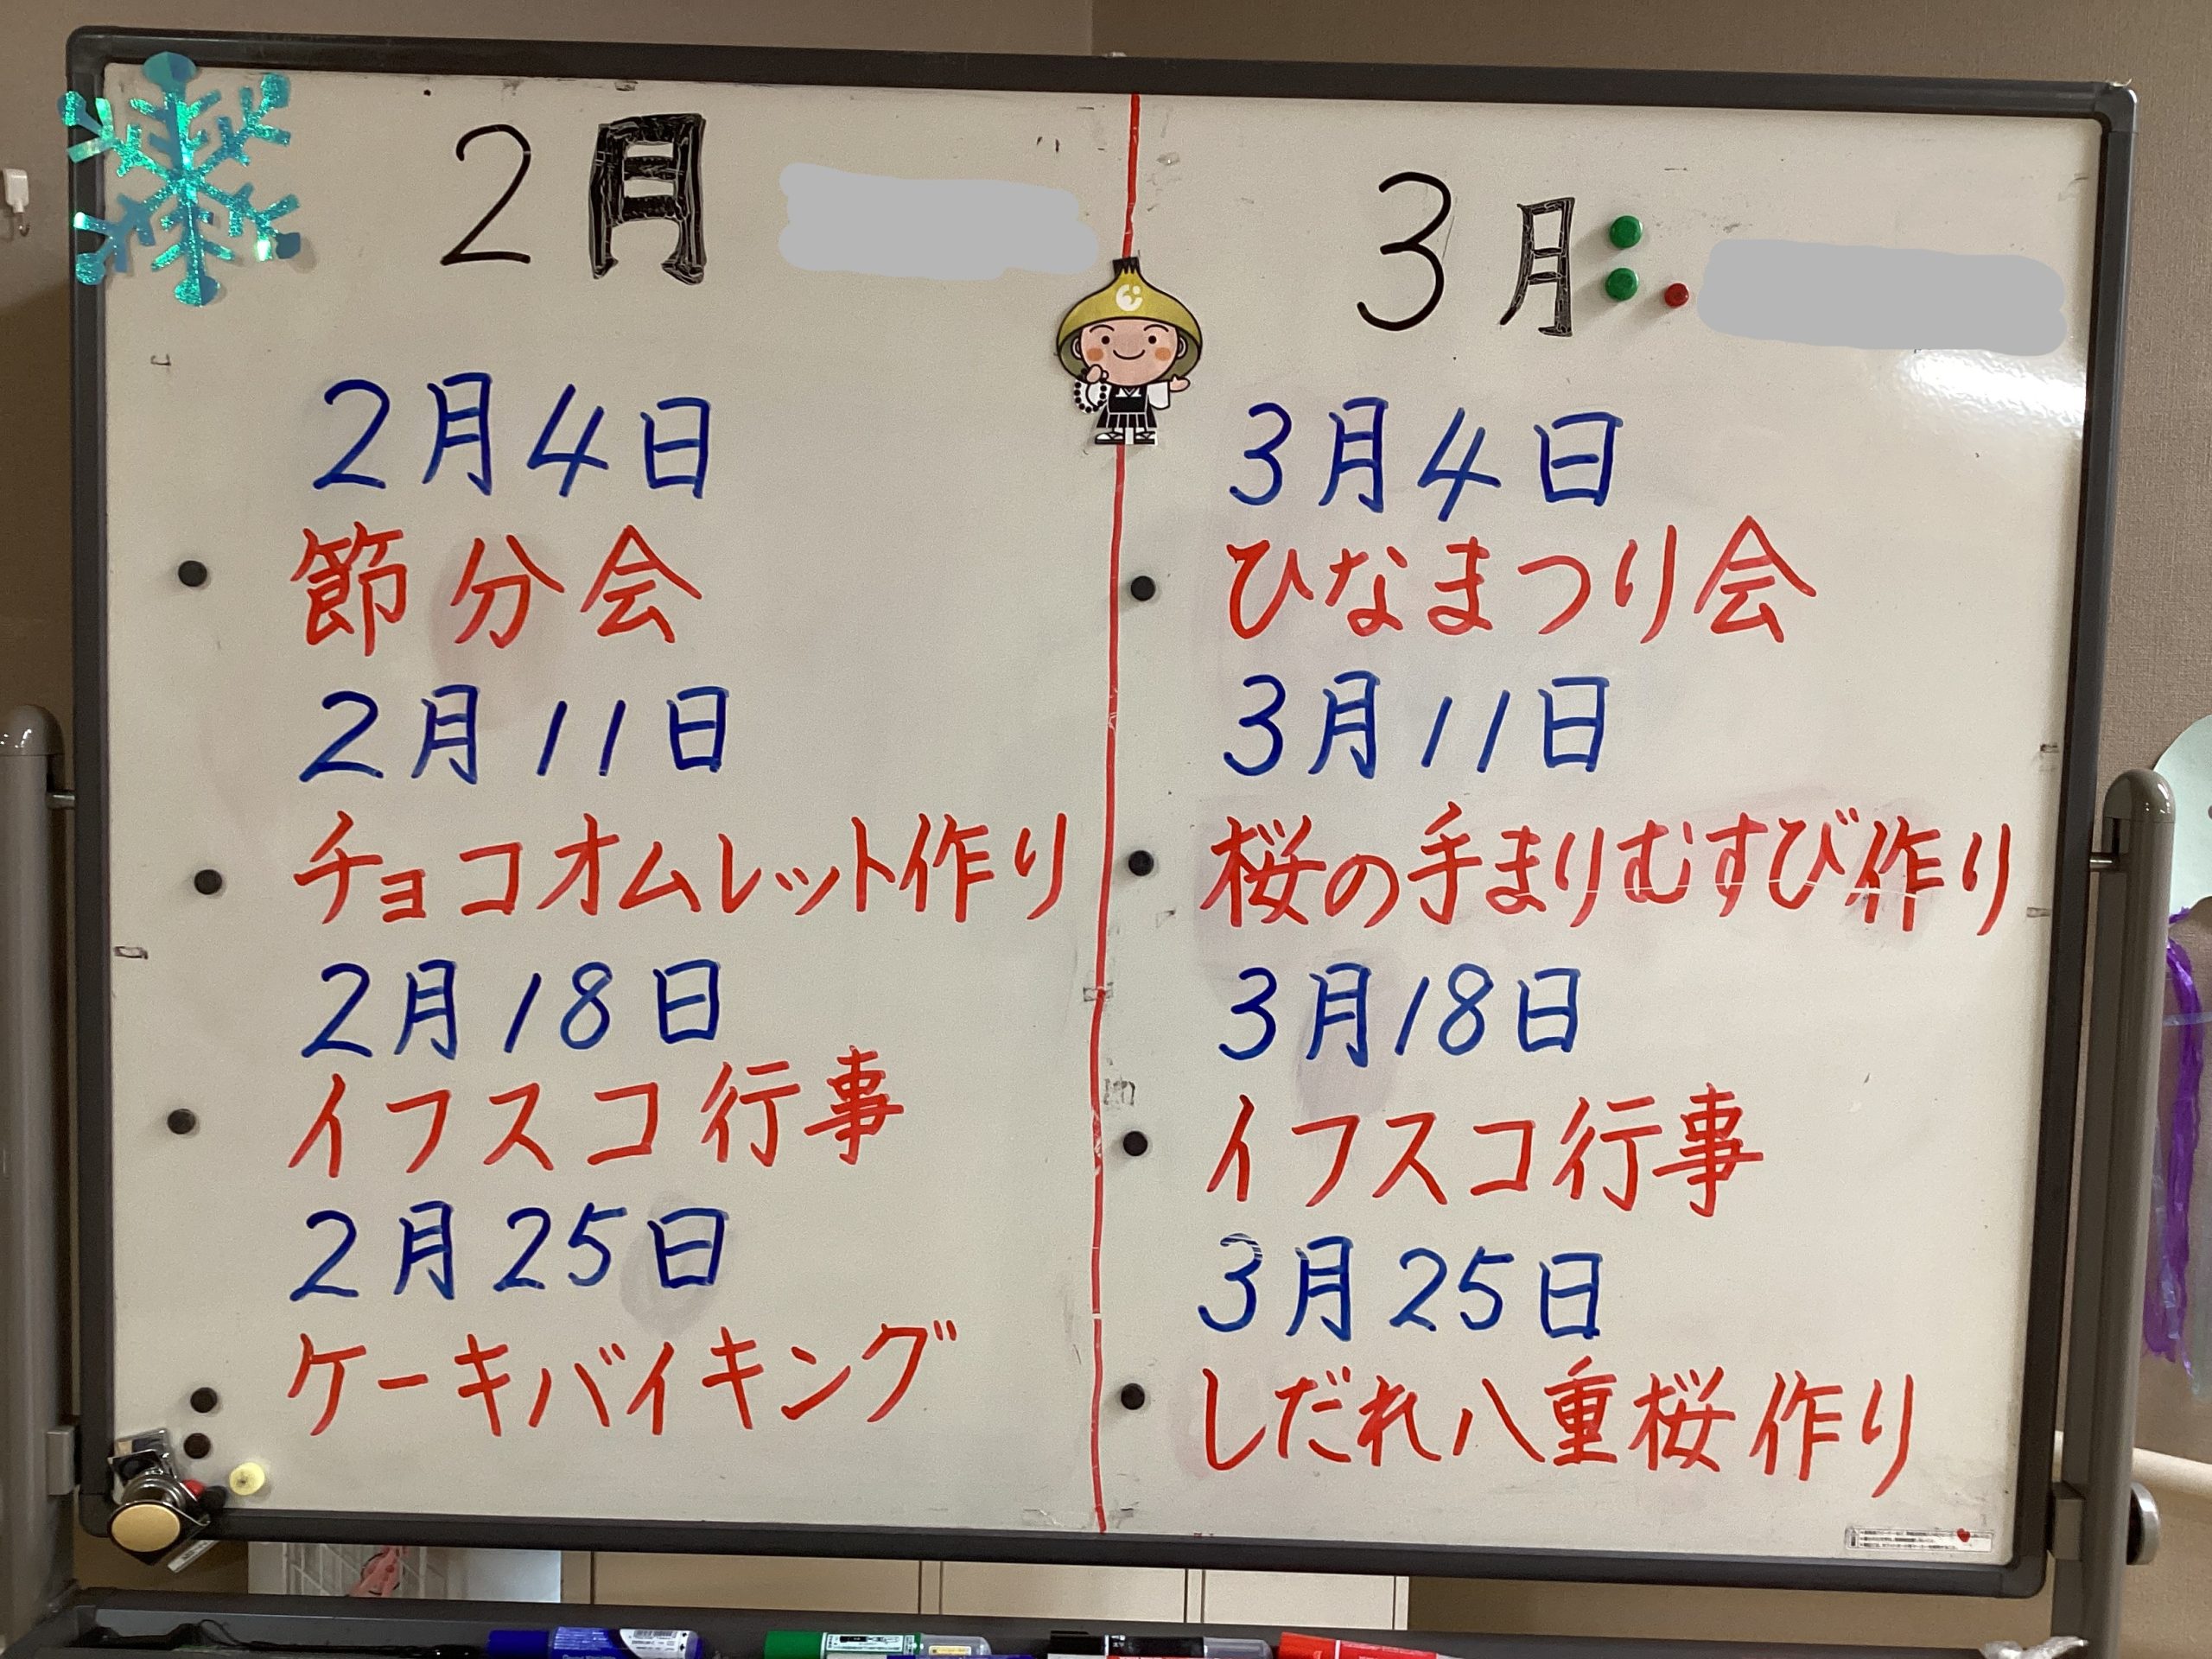 2月
2月4日
節分会
2月11日
チョコオムレット作り
2月18日
イフスコ行事
2月25日
ケーキバイキング
3月
3月4日
ひなまつり会
3月11日
桜の手まりむすび作り
3月18日
イフスコ行事
3月25日
しだれ八重桜作り